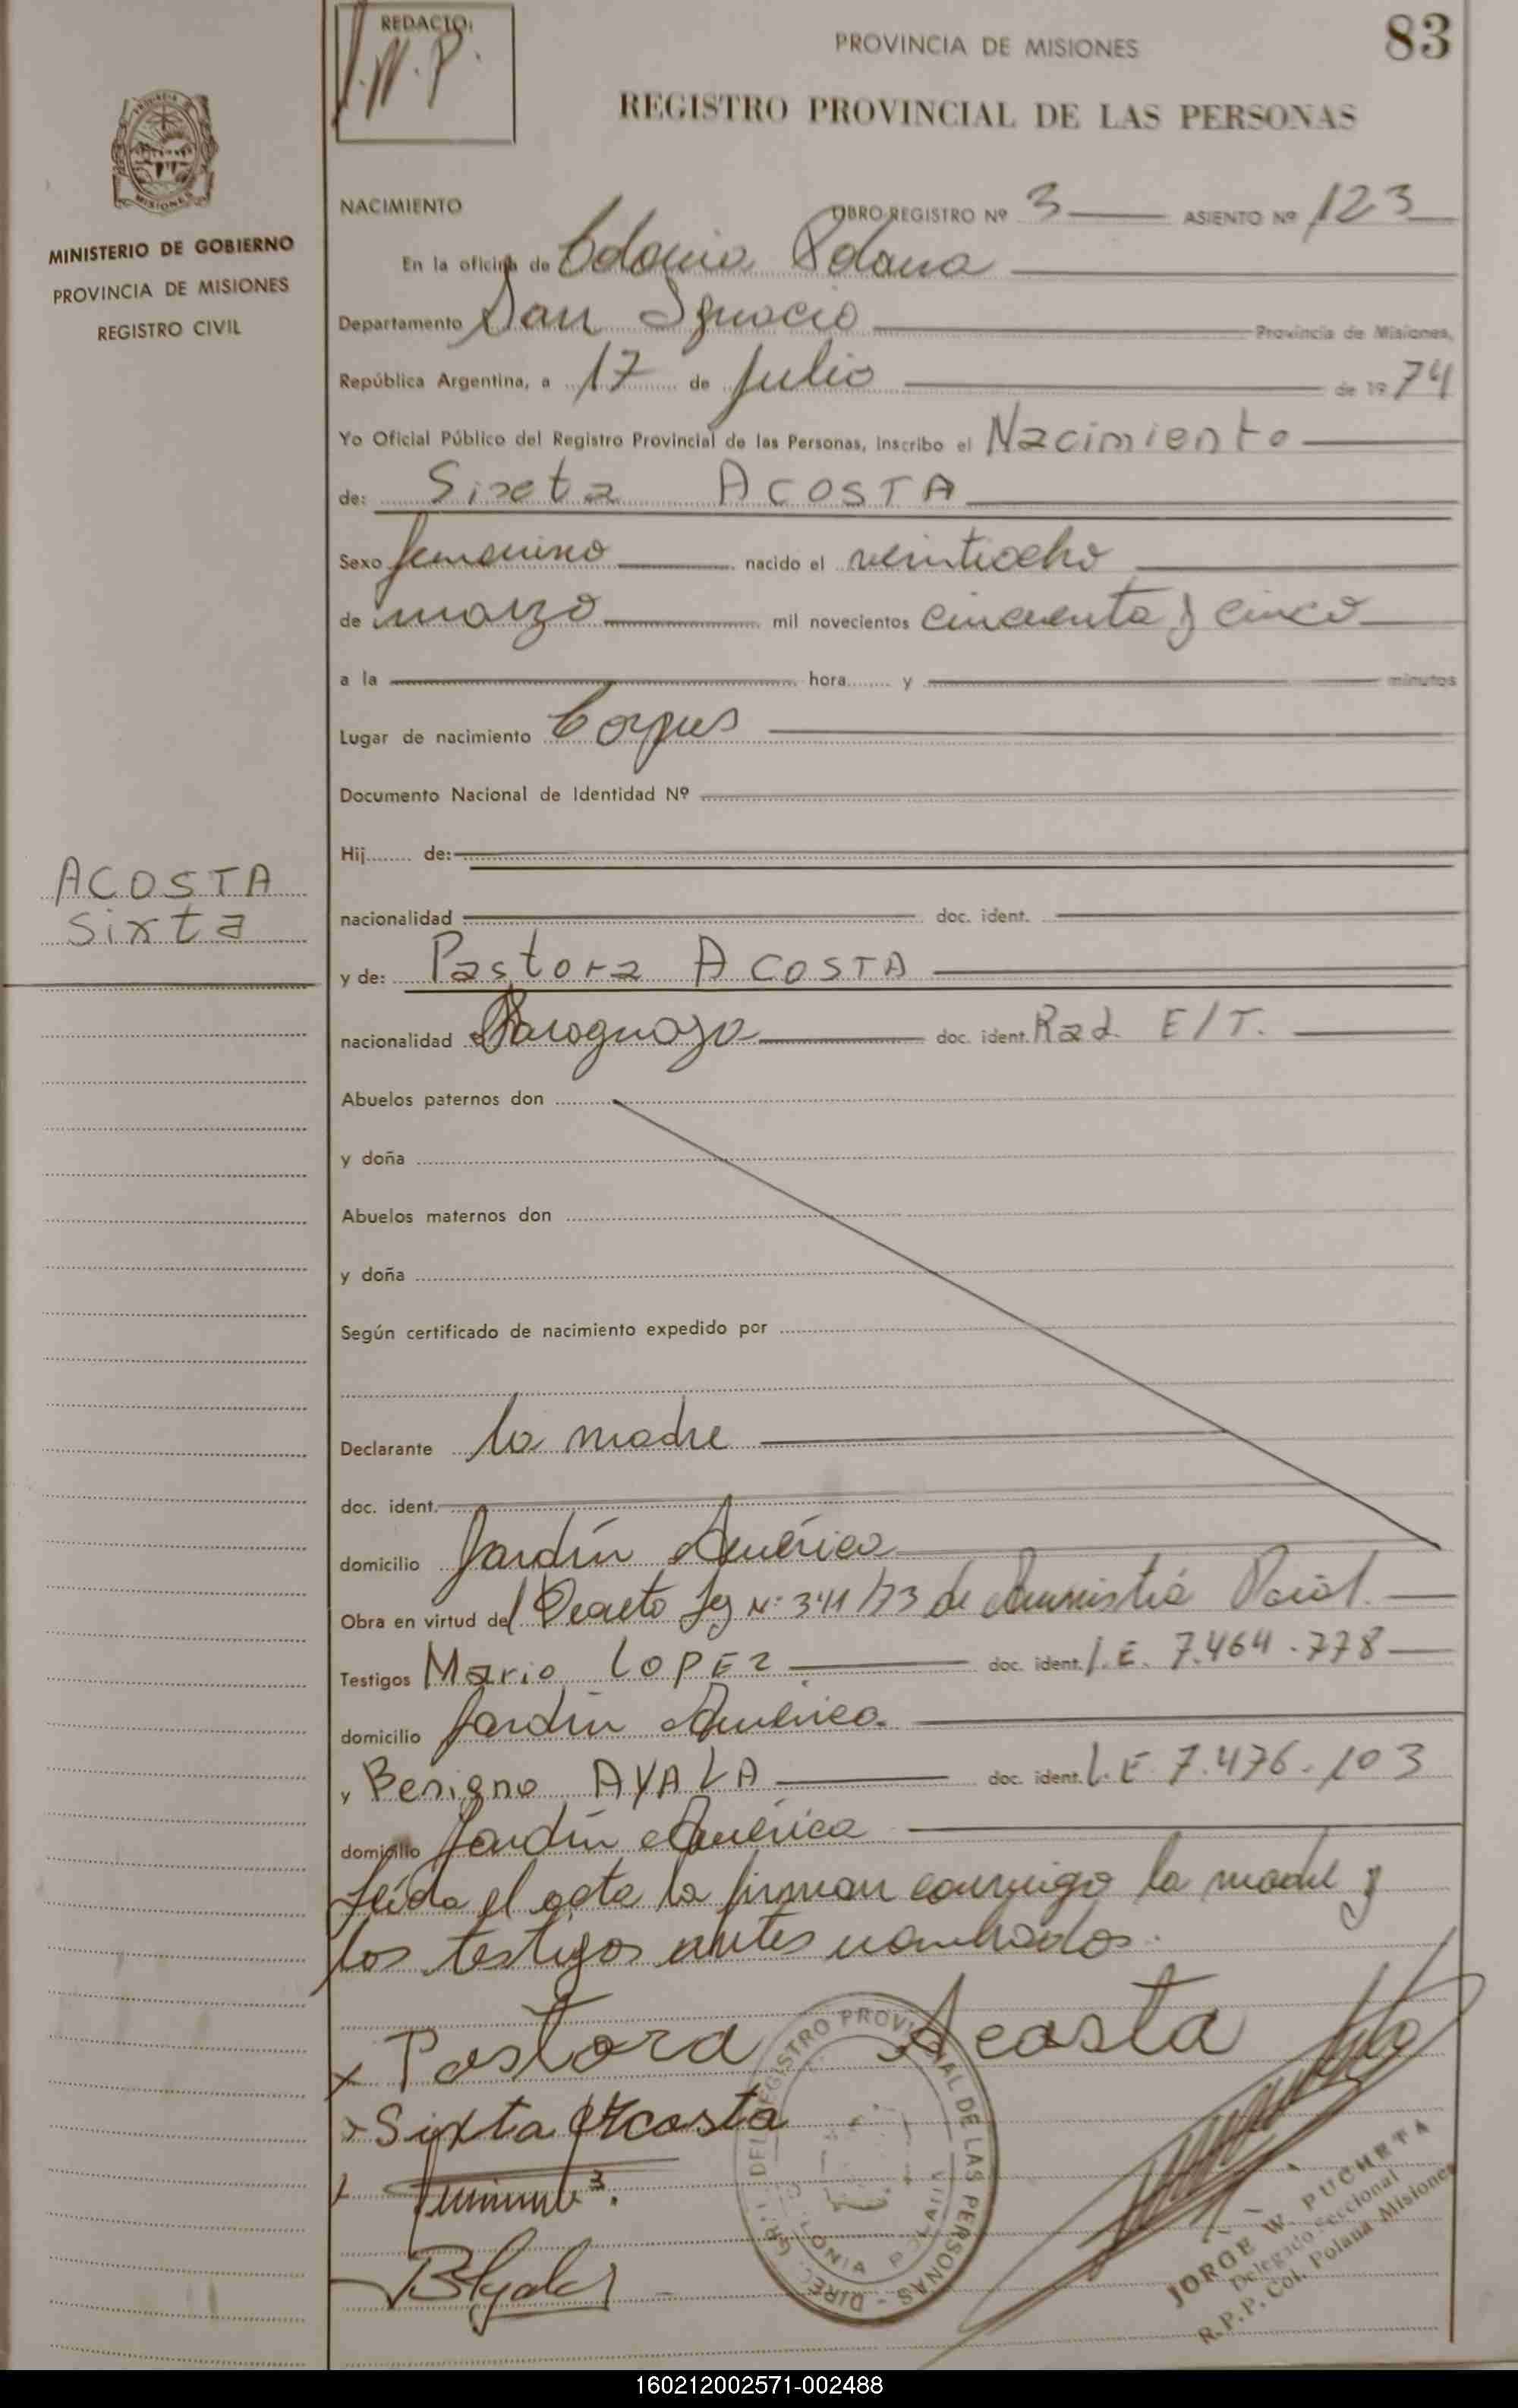 REDACTO:
83
PROVINCIA DE MISIONES
REGISTRO PROVINCIAL DE LAS PERSONAS
MISIONES
MINISTERIO DE GOBIERNO
PROVINCIA DE MISIONES
REGISTRO CIVIL
NACIMIENTO LIBRO REGISTRO Nº 3 ASIENTO Nº 123
En la oficina de Colonia Polana
Departamento San Ignacio Provincia de Misiones,
República Argentina, a 17 de Julio de 1974
Yo Oficial Público del Registro Provincial de las Personas, inscribo el Nacimiento
de: Sixta ACOSTA
Sexo femenino nacido el veintiocho
de marzo mil novecientos cincuenta y cinco
a la hora y minutos
Lugar de nacimiento Corpus
Documento Nacional de Identidad Nº
Hij de:
ACOSTA
Sixta
nacionalidad doc. ident.
y de: Pastora ACOSTA
nacionalidad Paraguaya doc. ident. Rad. E/T.
Abuelos paternos don
y doña
Abuelos maternos don
y doña
Según certificado de nacimiento expedido por
Declarante la madre
doc. ident.
domicilio Jardín América
Obra en virtud del Decreto Ley Nº 341/73 de Amnistía
Testigos Mario LOPEZ doc. ident. L.E. 7.464.778
domicilio Jardín América.
y Benigno AYALA doc. ident. L.E 7.476.103
domicilio Jardín América
Leída el acta la firman conmigo la madre y
los testigos antes nombrados.
x Pastora Acosta
x Sixta Acosta
DIREC. GRAL. DEL REGISTRO PROVINCIAL DE LAS PERSONAS
COLONIA POLANA
JORGE W. PUCHETA
Delegado Seccional
R.P.P. Col. Polana Misiones
160212002571-002488